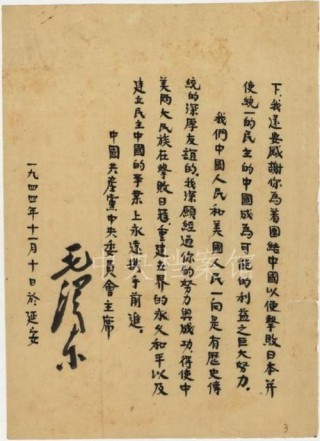 下,我還要感謝你為着團結中國以便擊敗日本并
使統一的民主的中國成為可能的利益之巨大努力。
我們中國人民和美國人民一向是有歷史傳
統的深厚友誼的。我深願經過你的努力與成功,得使中
美兩大民族在擊敗日寇,重建世界的永久和平以及
建立民主中國的事業上永遠携手前進。
中國共產黨中央委員會主席
毛澤东
一九四四年十一月十日於延安
中央档案馆
3